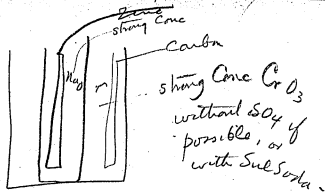 Zinc
strong Conc
Carbon
strong Conc CrO3
without SO4 if
possible, or
with Sul Soda